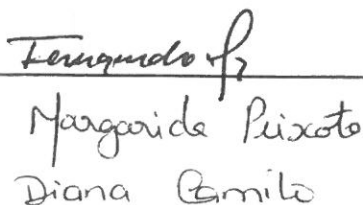 Fernando
Margarida Peixoto
Diana Camilo